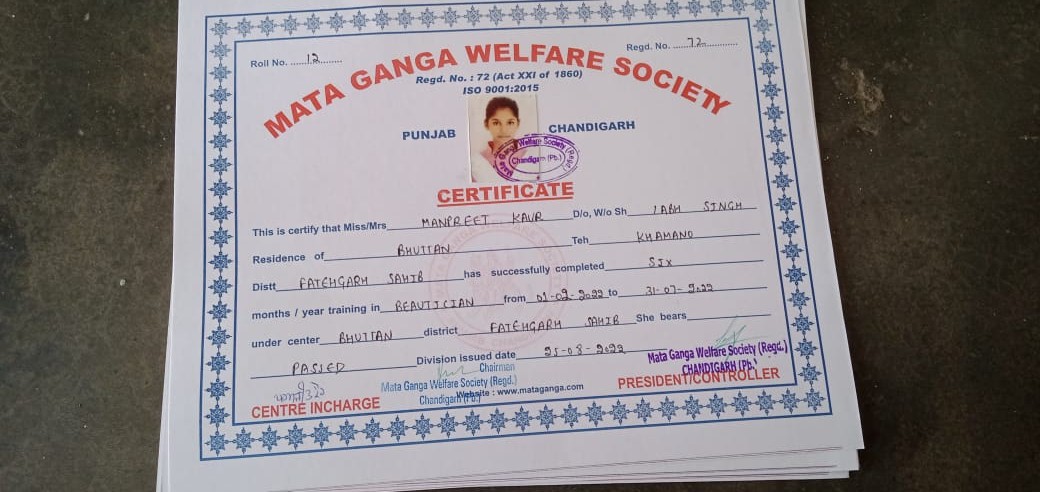 Roll No. 12
Regd. No. 72
MATA GANGA WELFARE SOCIETY
Regd. No. : 72 (Act XXI of 1860)
ISO 9001:2015
PUNJAB CHANDIGARH
Mata Ganga Welfare Society (Regd.)
Chandigarh (Pb.)
CERTIFICATE
This is certify that Miss/Mrs MANPREET KAUR D/o, W/o Sh LABH SINGH
Residence of BHUTTAN Teh KHAMANO
Distt FATEHGARH SAHIB has successfully completed SIX
months / year training in BEAUTICIAN from 01-02-2022 to 31-07-2022
under center BHUTTAN district FATEHGARH SAHIB She bears
PASSED Division issued date 25-08-2022
Chairman
Mata Ganga Welfare Society (Regd.)
Chandigarh (Pb.)
Website : www.mataganga.com
Mata Ganga Welfare Society (Regd.)
CHANDIGARH (Pb.)
CENTRE INCHARGE
PRESIDENT/CONTROLLER